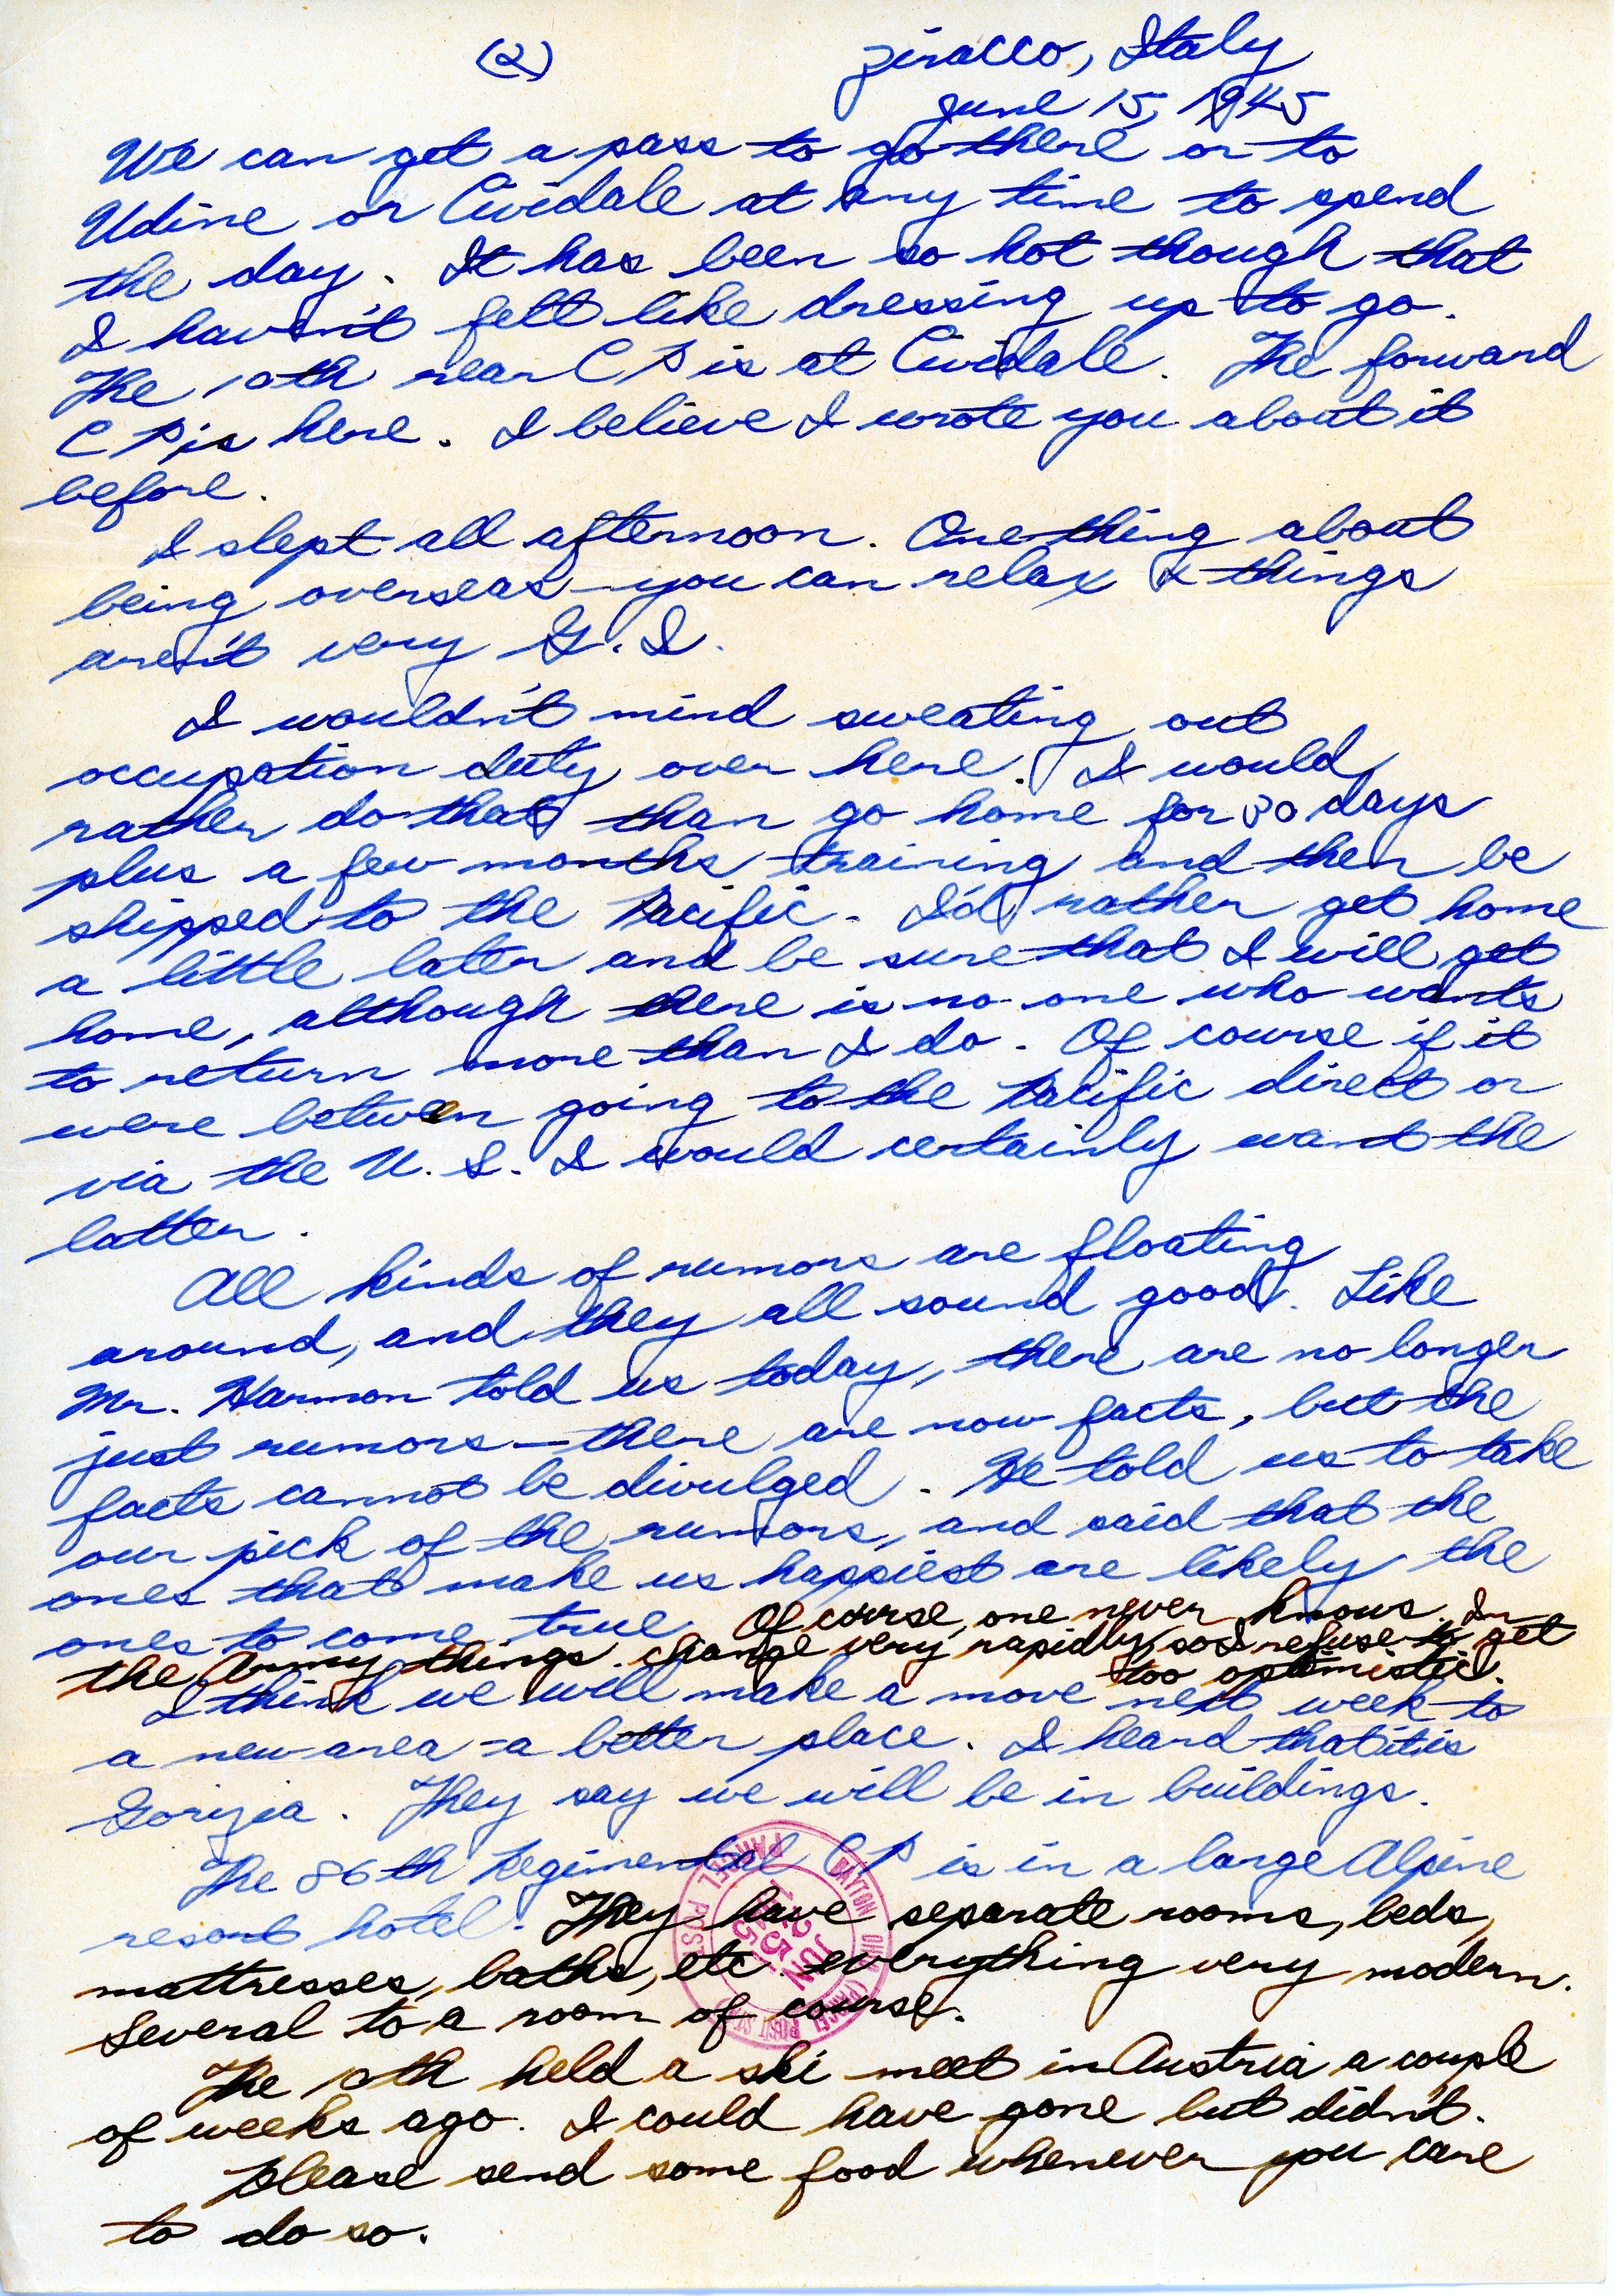 (2)
Ziracco, Italy
June 15, 1945
We can get a pass to go there or to
Udine or Cividale at any time to spend
the day. It has been so hot though that
I haven't felt like dressing up to go.
The 10th rear CP is at Cividale. The forward
CP is here. I believe I wrote you about it
before.
I slept all afternoon. One thing about
being overseas—you can relax & things
aren't very G.I.
I wouldn't mind sweating out
occupation duty over here. I would
rather do that than go home for 30 days
plus a few months training and then be
shipped to the Pacific. I'd rather get home
a little later and be sure that I will get
home, although there is no one who wants
to return more than I do. Of course if it
were between going to the Pacific direct or
via the U.S. I would certainly want the
latter.
All kinds of rumors are floating
around, and they all sound good. Like
Mr. Harmon told us today, there are no longer
just rumors—there are now facts, but the
facts cannot be divulged. He told us to take
our pick of the rumors, and said that the
ones that make us happiest are likely the
ones to come true. Of course, one never knows. In
the Army things change very rapidly, so I refuse to get
too optimistic.
I think we will make a move next week to
a new area - a better place. I heard that it is
Gorizia. They say we will be in buildings.
The 86th Regimental CP is in a large Alpine
resort hotel. They have separate rooms, beds,
mattresses, baths, etc. everything very modern.
Several to a room of course.
The 10th held a ski meet in Austria a couple
of weeks ago. I could have gone but didn't.
Please send some food whenever you care
to do so.
DAYTON OHIO
PARCEL POST
JUN 25